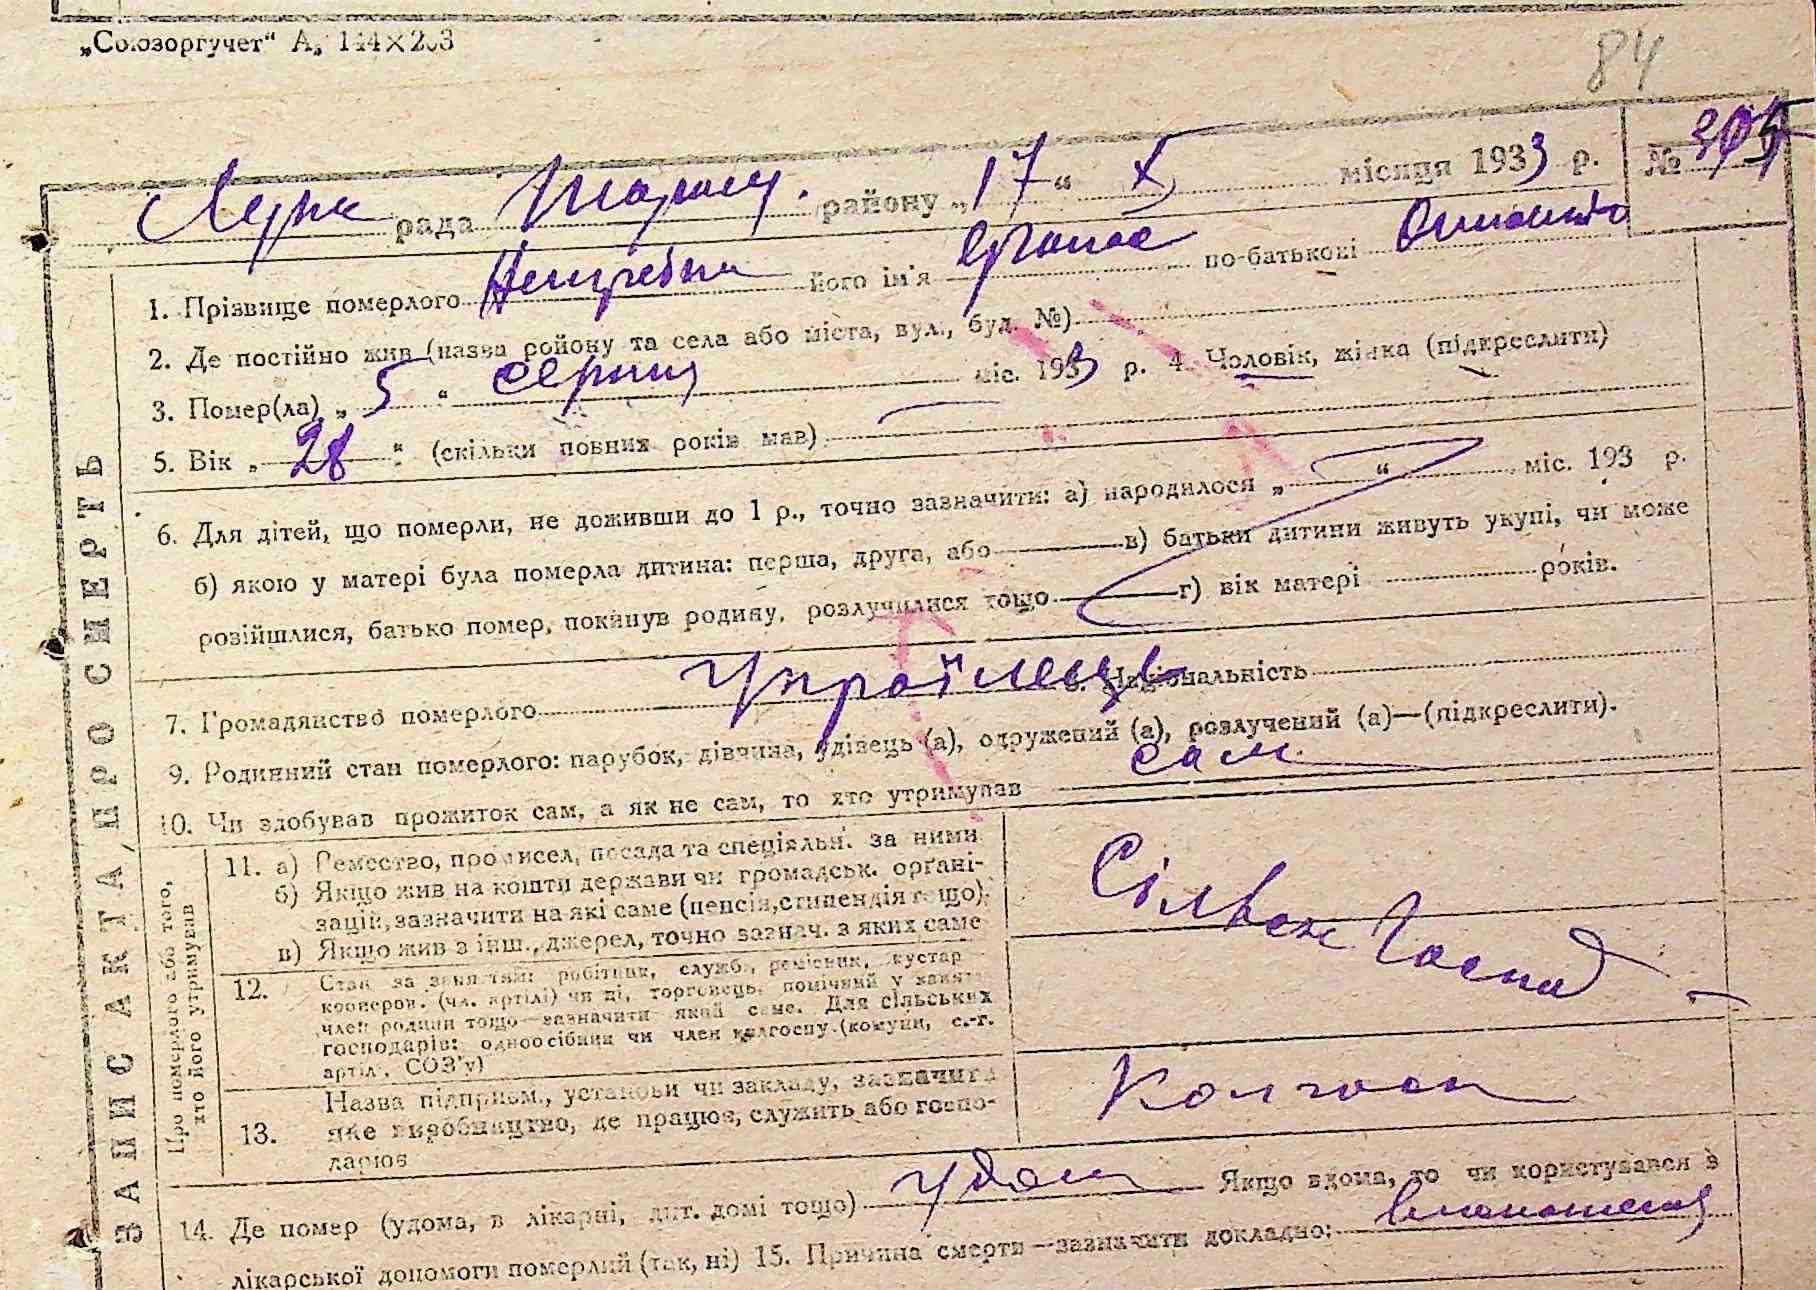 „Союзоргучет“ А„ 144×203
84
рада район у „17“ X місяця 1933 р. №
1. Прізвище померлого його ім'я Опанас по-батькові
2. Де постійно жив (назва району та села або міста, вул., буд. №)
3. Помер(ла) „5“ серпня міс. 1933 р. 4. Чоловік, жінка (підкреслити)
5. Вік „28“ (скільки повних років мав)
6. Для дітей, що померли, не доживши до 1 р., точно зазначити: а) народилося „ “ міс. 193 р.
б) якою у матері була померла дитина: перша, друга, або в) батьки дитини живуть укупі, чи може
розійшлися, батько помер, покинув родину, розлучилися тощо г) вік матері років.
7. Громадянство померлого українець 8. Національність
9. Родинний стан померлого: парубок, дівчина, удівець (а), одружений (а), розлучений (а)—(підкреслити).
10. Чи здобував прожиток сам, а як не сам, то хто утримував сам
ЗАПИС АКТА ПРО СМЕРТЬ
Про померлого або того,
хто його утримував
11. а) Ремество, промисел, посада та спеціяльн. за ними
б) Якщо жив на кошти держави чи громадськ. органі-
зацій, зазначити на які саме (пенсія, стипендія тощо)
в) Якщо жив з інш., джерел, точно зазнач. з яких саме
Сільск Господ
12. Стан за заняттям: робітник, служб., ремісник, кустар
кооперов. (чл. артілі) чи ні, торговець, помічний у занят.
член родини тощо—зазначити який саме. Для сільських
господарів: одноосібник чи член колгоспу (комуни, с.-г.
артіл., СОЗ'у)
13. Назва підприєм., установи чи закладу, зазначити
яке виробництво, де працює, служить або госпо-
дарює
Колгосп
14. Де помер (удома, в лікарні, дит. домі тощо) удома Якщо вдома, то чи користувався з
лікарської допомоги померлий (так, ні) 15. Причина смерти—зазначити докладно: